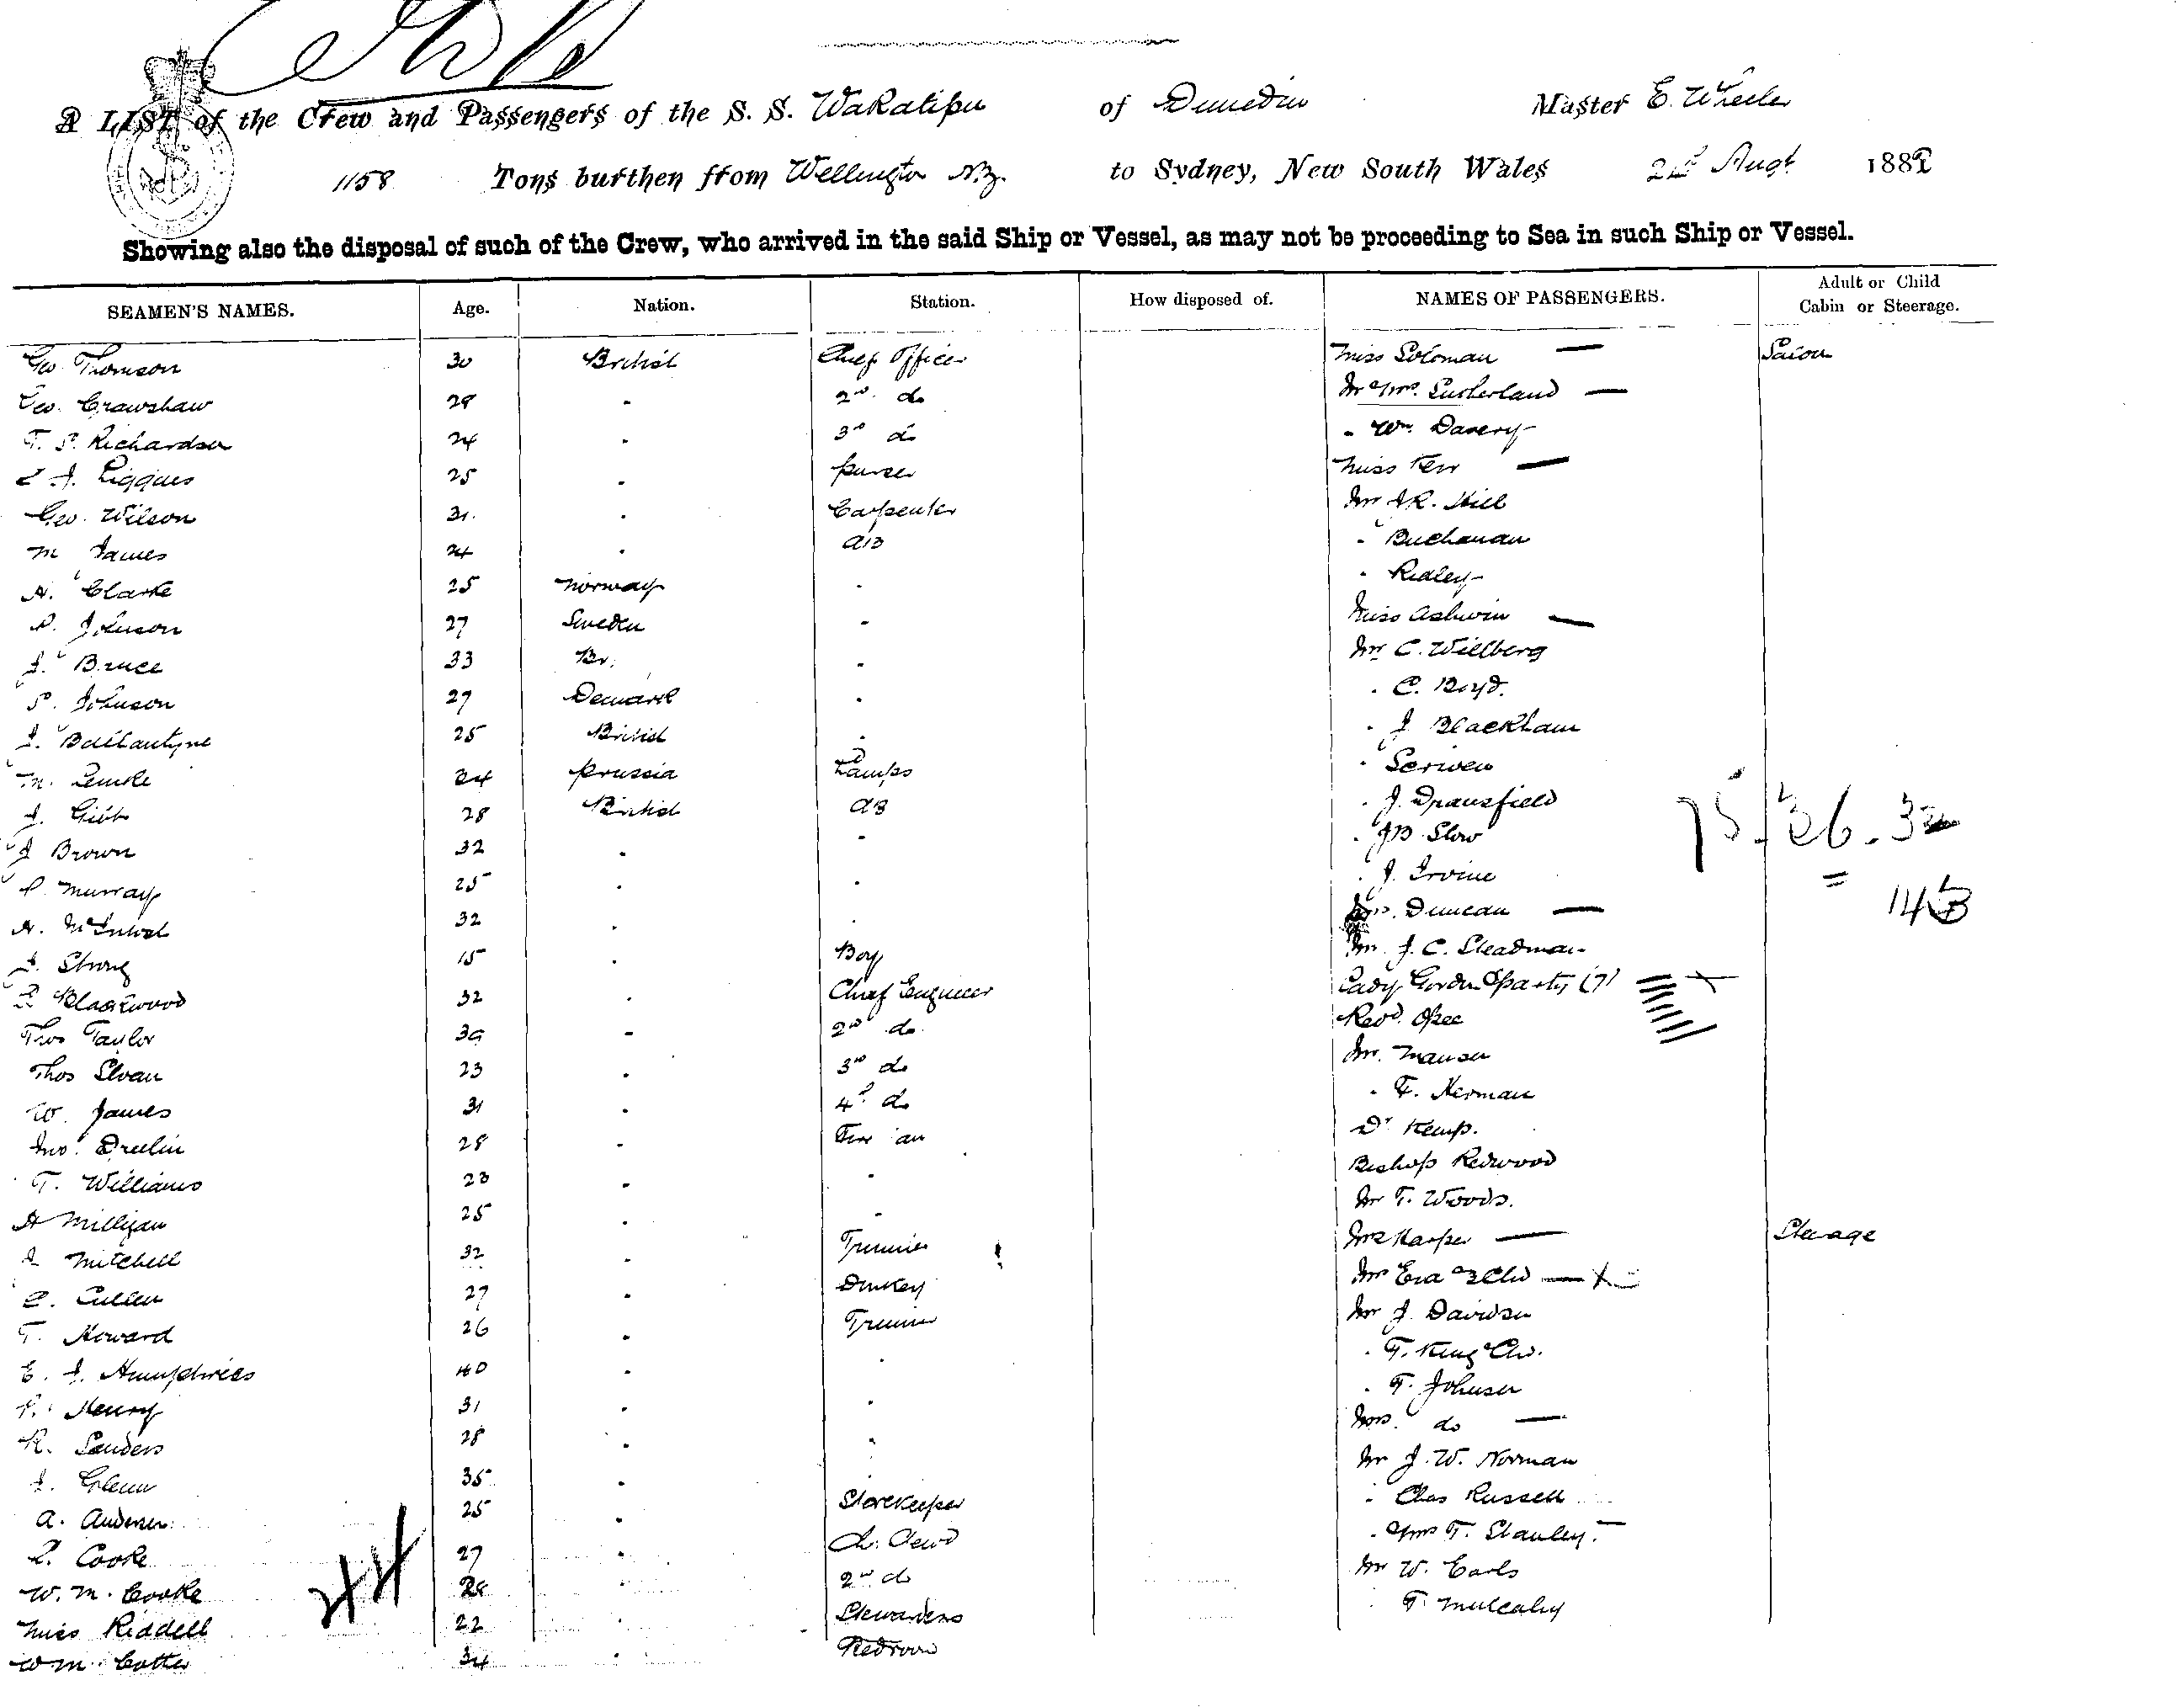 A LIST of the Crew and Passengers of the S. S. Wakatipu of Dunedin Master E. Wheeler
1158 Tons burthen from Wellington N.Z. to Sydney, New South Wales 21st Augt 1882
Showing also the disposal of such of the Crew, who arrived in the said Ship or Vessel, as may not be proceeding to Sea in such Ship or Vessel.
SEAMEN'S NAMES. Age. Nation. Station. How disposed of. NAMES OF PASSENGERS. Adult or Child Cabin or Steerage.
Geo Thomson 30 British Chief Officer Miss Soloman — Saloon
Geo. Crawshaw 29 - 2nd do Mr & Mrs. Sutherland —
T. S. Richardson 24 - 3rd do - Wm. Davery
25 - Purser Miss Kerr —
Geo. Wilson 31 - Carpenter Mr J R. Hill
M James 24 - AB - Buchanan
H. Clarke 25 Norway - - Ridley
P. Johnson 27 Sweden - Miss Ashwin —
J. Bruce 33 Br. - Mr C. Willberg
P. Johnson 27 Denmark - - C. Boyd.
J. Ballantyne 25 British - - J Blackham
M. Lemke 24 Prussia Lamps - Scriven
J. Gibb 28 British AB - J. Dransfield
J Brown 32 - - - J B Slow
P. Murray 25 - - - J. Irvine
H. McIntosh 32 - - Mrs. Duncan —
J. Strong 15 - Boy Mr. J. C. Steadman
Blackwood 32 - Chief Engineer Lady Gordon & party (7)
Thos Taylor 39 - 2nd do Revd.
Thos Sloan 23 - 3rd do Mr.
W. James 31 - 4th do - F. Herman
Jno. 28 - Dr Kemp.
T. Williams 23 - - Bishop Redwood
H Milligan 25 - - Mr T. Woods.
J Mitchell 32 - Trimmer Mrs Harper — Steerage
C. Cullen 27 - Donkey Mrs & 2 Chd —
T. Howard 26 - Trimmer Mr J. Davidson
E. J. Humphries 40 - - - T. King & Chd.
P. Henry 31 - - - T. Johnson
R. Sanders 28 - - Mrs. do —
J. Glenn 35 - - Mr J. W. Norman
A. Andersen 25 - Storekeeper - Chas Russell
L. Cooke 27 - Ch: Stewd - & Mrs T. Stanley. —
W. M. Cooke 28 - 2nd do Mr W. Earls
Miss Riddell 22 - Stewardess - T. Mulcahy
Wm. Cotter 34 - Bedroom
75. 36. 32
= 143
44